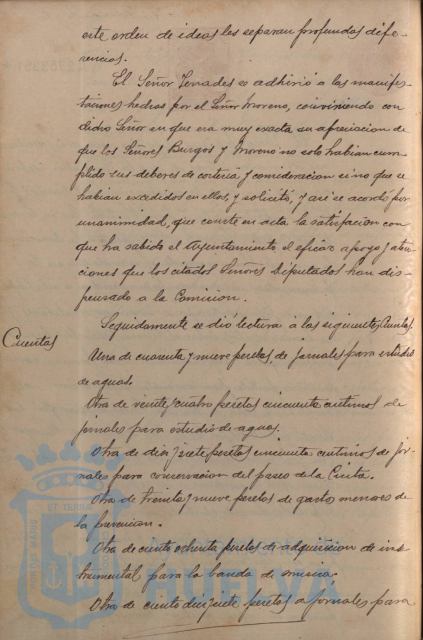 este orden de ideas les separan profundas dife-
rencias.
El Señor Terrades se adhirió a las manifes-
taciones hechas por el Señor Moreno, conviniendo con
dicho Señor en que era muy exacta su apreciacion de
que los Señores Burgos y Moreno no solo habian cum-
plido sus deberes de cortesia y consideracion sino que se
habian excedidos en ellos, y solicitó, y asi se acordó por
unanimidad, que conste en acta la satisfaccion con
que ha sabido el Ayuntamiento el eficaz apoyo y aten-
ciones que los citados Señores Diputados han dis-
pensado a la Comision.
Seguidamente se dió lectura á las siguientes Cuentas.
Cuentas
Una de cuarenta y nueve pesetas, de jornales para estudio
de aguas.
Otra de veinte y cuatro pesetas cincuenta centimos de
jornales para estudio de aguas.
Otra de diez y siete pesetas cincuenta centimos de jor-
nales para conservacion del paseo de la Cinta.
Otra de treinta y nueve pesetas de gastos menores de
la prevencion.
Otra de ciento ochenta pesetas de adquisicion de ins-
trumental para la banda de musica.
Otra de ciento diez y siete pesetas a jornales para